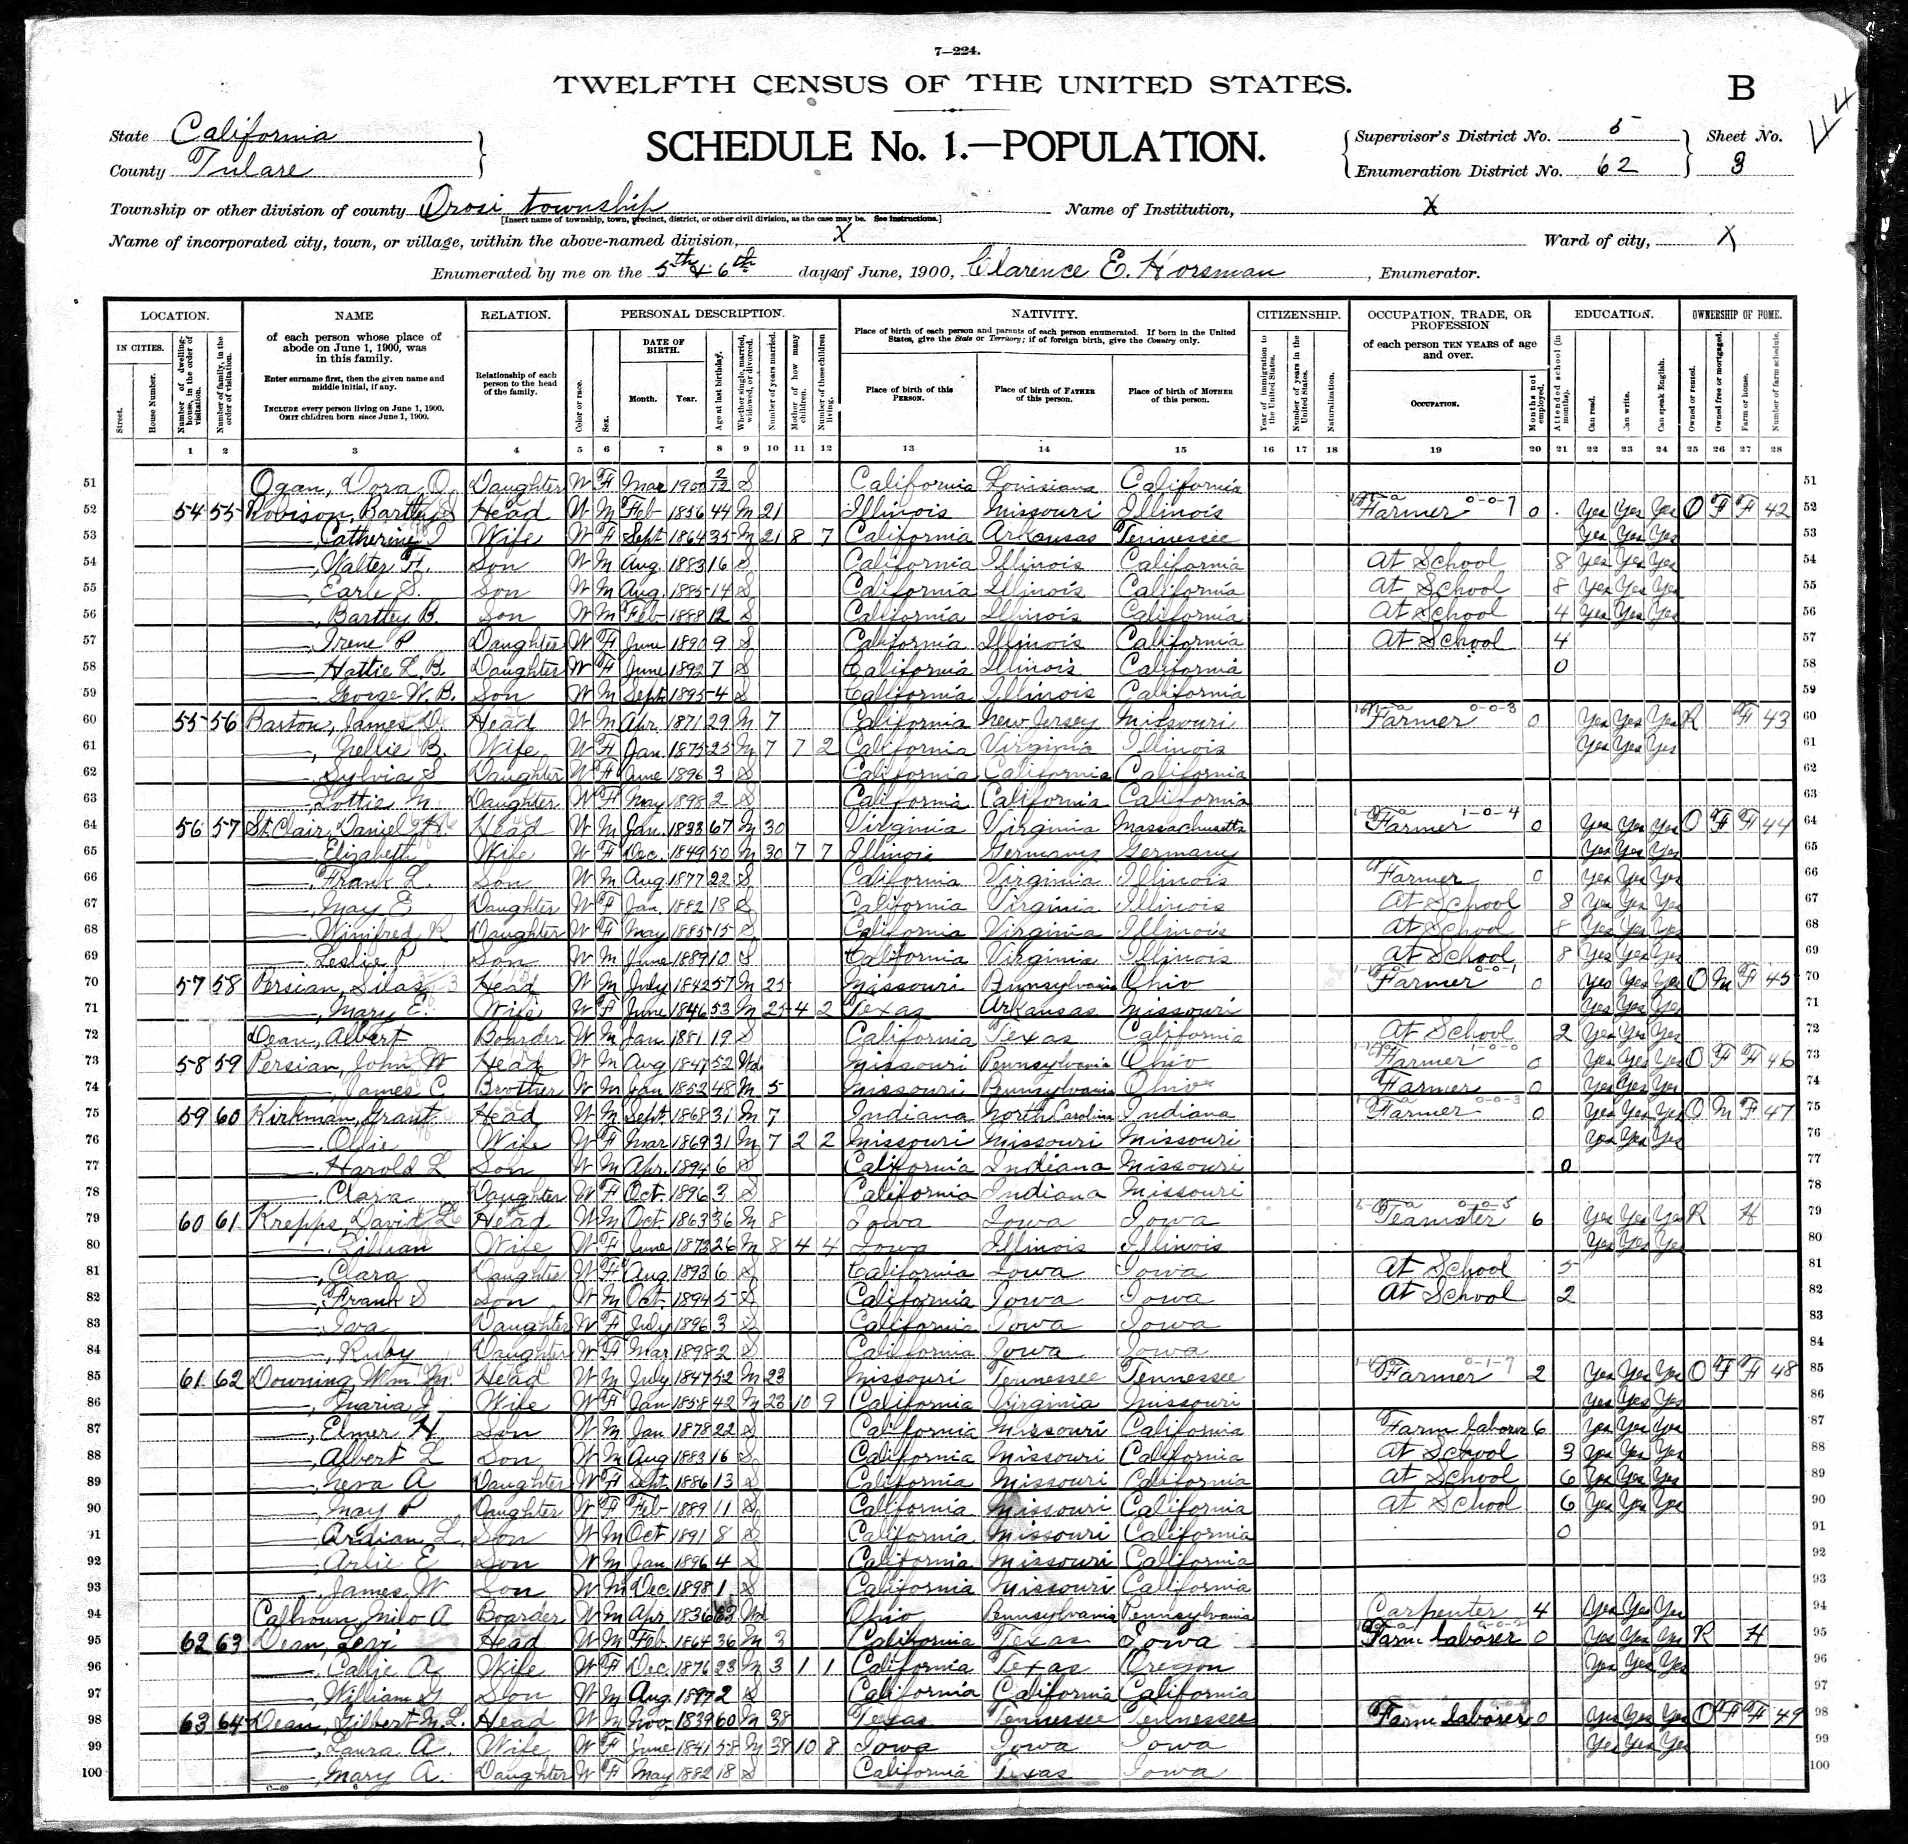 7—224.
TWELFTH CENSUS OF THE UNITED STATES.
B
State California
SCHEDULE No. 1.—POPULATION.
Supervisor's District No. 5 Sheet No.
County Tulare
Enumeration District No. 62 3
Township or other division of county Orosi township Name of Institution, X
[Insert name of township, town, precinct, district, or other civil division, as the case may be. See instructions.]
Name of incorporated city, town, or village, within the above-named division, X Ward of city, X
Enumerated by me on the 5th & 6th days of June, 1900, Clarence E. Horsman, Enumerator.
LOCATION. NAME RELATION. PERSONAL DESCRIPTION. NATIVITY. CITIZENSHIP. OCCUPATION, TRADE, OR PROFESSION EDUCATION. OWNERSHIP OF HOME.
IN CITIES. Street. House Number. Number of dwelling-house, in the order of visitation. Number of family, in the order of visitation.
of each person whose place of abode on June 1, 1900, was in this family.
Enter surname first, then the given name and middle initial, if any.
INCLUDE every person living on June 1, 1900. OMIT children born since June 1, 1900.
Relationship of each person to the head of the family.
Color or race. Sex. DATE OF BIRTH. Month. Year. Age at last birthday. Whether single, married, widowed, or divorced. Number of years married. Mother of how many children. Number of these children living.
Place of birth of each person and parents of each person enumerated. If born in the United States, give the State or Territory; if of foreign birth, give the Country only.
Place of birth of this PERSON. Place of birth of FATHER of this person. Place of birth of MOTHER of this person.
Year of immigration to the United States. Number of years in the United States. Naturalization.
of each person TEN YEARS of age and over.
OCCUPATION. Months not employed. Attended school (in months). Can read. Can write. Can speak English. Owned or rented. Owned free or mortgaged. Farm or house. Number of farm schedule.
1 2 3 4 5 6 7 8 9 10 11 12 13 14 15 16 17 18 19 20 21 22 23 24 25 26 27 28
51 Ogan, Dora O. Daughter W F Mar 1900 2/12 S California Louisiana California 51
52 54 55 Robison, Bartley S Head W M Feb 1856 44 M 21 Illinois Missouri Illinois Farmer 0-0-7 0 Yes Yes Yes O F F 42 52
53 —, Catherine I Wife W F Sept 1864 35 M 21 8 7 California Arkansas Tennessee Yes Yes Yes 53
54 —, Walter H. Son W M Aug. 1883 16 S California Illinois California At School 8 Yes Yes Yes 54
55 —, Earle S. Son W M Aug. 1885 14 S California Illinois California At School 8 Yes Yes Yes 55
56 —, Bartley B. Son W M Feb 1888 12 S California Illinois California At School 4 Yes Yes Yes 56
57 —, Irene P Daughter W F June 1890 9 S California Illinois California At School 4 57
58 —, Hattie L. B. Daughter W F June 1892 7 S California Illinois California 0 58
59 —, George W. B. Son W M Sept 1895 4 S California Illinois California 59
60 55 56 Barton, James D. Head W M Apr 1871 29 M 7 California New Jersey Missouri Farmer 0-0-3 0 Yes Yes Yes R F 43 60
61 —, Nellie B. Wife W F Jan. 1875 25 M 7 7 2 California Virginia Illinois Yes Yes Yes 61
62 —, Sylvia S Daughter W F June 1896 3 S California California California 62
63 —, Lottie M. Daughter W F May 1898 2 S California California California 63
64 56 57 St. Clair, Daniel Head W M Jan. 1833 67 M 30 Virginia Virginia Massachusetts Farmer 1-0-4 0 Yes Yes Yes O F F 44 64
65 —, Elizabeth Wife W F Dec. 1849 50 M 30 7 7 Illinois Germany Germany Yes Yes Yes 65
66 —, Frank L. Son W M Aug 1877 22 S California Virginia Illinois Farmer 0 Yes Yes Yes 66
67 —, May E Daughter W F Jan. 1882 18 S California Virginia Illinois At School 8 Yes Yes Yes 67
68 —, Winifred R Daughter W F May 1885 15 S California Virginia Illinois At School 8 Yes Yes Yes 68
69 —, Leslie P Son W M June 1889 10 S California Virginia Illinois At School 8 Yes Yes Yes 69
70 57 58 Persian, Silas Head W M July 1842 57 M 25 Missouri Pennsylvania Ohio Farmer 0-0-1 0 Yes Yes Yes O M F 45 70
71 —, Mary E. Wife W F June 1846 53 M 25 4 2 Texas Arkansas Missouri Yes Yes Yes 71
72 Dean, Albert Boarder W M Jan 1881 19 S California Texas California At School 2 Yes Yes Yes 72
73 58 59 Persian, John W Head W M Aug 1847 52 Wd Missouri Pennsylvania Ohio Farmer 1-0-0 0 Yes Yes Yes O F F 46 73
74 —, James C Brother W M Jan 1852 48 M 5 Missouri Pennsylvania Ohio Farmer 0 Yes Yes Yes 74
75 59 60 Kirkman, Grant Head W M Sept 1868 31 M 7 Indiana North Carolina Indiana Farmer 0-0-3 0 Yes Yes Yes O M F 47 75
76 —, Ollie Wife W F Mar 1869 31 M 7 2 2 Missouri Missouri Missouri Yes Yes Yes 76
77 —, Harold L Son W M Apr. 1894 6 S California Indiana Missouri 0 77
78 —, Clara Daughter W F Oct. 1896 3 S California Indiana Missouri 78
79 60 61 Krepps, David L Head W M Oct. 1863 36 M 8 Iowa Iowa Iowa Teamster 0-0-5 6 Yes Yes Yes R H 79
80 —, Lillian Wife W F June 1873 26 M 8 4 4 Iowa Illinois Illinois Yes Yes Yes 80
81 —, Clara Daughter W F Aug 1893 6 S California Iowa Iowa At School 5 81
82 —, Frank S Son W M Oct. 1894 5 S California Iowa Iowa At School 2 82
83 —, Iva Daughter W F July 1896 3 S California Iowa Iowa 83
84 —, Ruby Daughter W F Mar 1898 2 S California Iowa Iowa 84
85 61 62 Downing, Wm M. Head W M July 1847 52 M 23 Missouri Tennessee Tennessee Farmer 0-1-7 2 Yes Yes Yes O F F 48 85
86 —, Maria J. Wife W F Jan 1858 42 M 23 10 9 California Virginia Missouri Yes Yes Yes 86
87 —, Elmer H Son W M Jan 1878 22 S California Missouri California Farm laborer 6 Yes Yes Yes 87
88 —, Albert L Son W M Aug 1883 16 S California Missouri California At School 3 Yes Yes Yes 88
89 —, Neva A Daughter W F Sept. 1886 13 S California Missouri California At School 6 Yes Yes Yes 89
90 —, May P Daughter W F Feb 1889 11 S California Missouri California At School 6 Yes Yes Yes 90
91 —, Ardian L. Son W M Oct 1891 8 S California Missouri California 0 91
92 —, Arlie E Son W M Jan 1896 4 S California Missouri California 92
93 —, James W Son W M Dec 1898 1 S California Missouri California 93
94 Calhoun, Milo A Boarder W M Apr 1836 Wd Ohio Pennsylvania Pennsylvania Carpenter 4 Yes Yes Yes 94
95 62 63 Dean, Levi Head W M Feb 1864 36 M 3 California Texas Iowa Farm laborer 0 Yes Yes Yes R H 95
96 —, Callie A. Wife W F Dec. 1876 23 M 3 1 1 California Texas Oregon Yes Yes Yes 96
97 —, William G Son W M Aug 1897 2 S California California California 97
98 63 64 Dean, Gilbert M. L. Head W M Nov. 1839 60 M 38 Texas Tennessee Tennessee Farm laborer 0 Yes Yes Yes O F F 49 98
99 —, Laura A. Wife W F June 1841 58 M 38 10 8 Iowa Iowa Iowa Yes Yes Yes 99
100 —, Mary A. Daughter W F May 1882 18 S California Texas Iowa 100